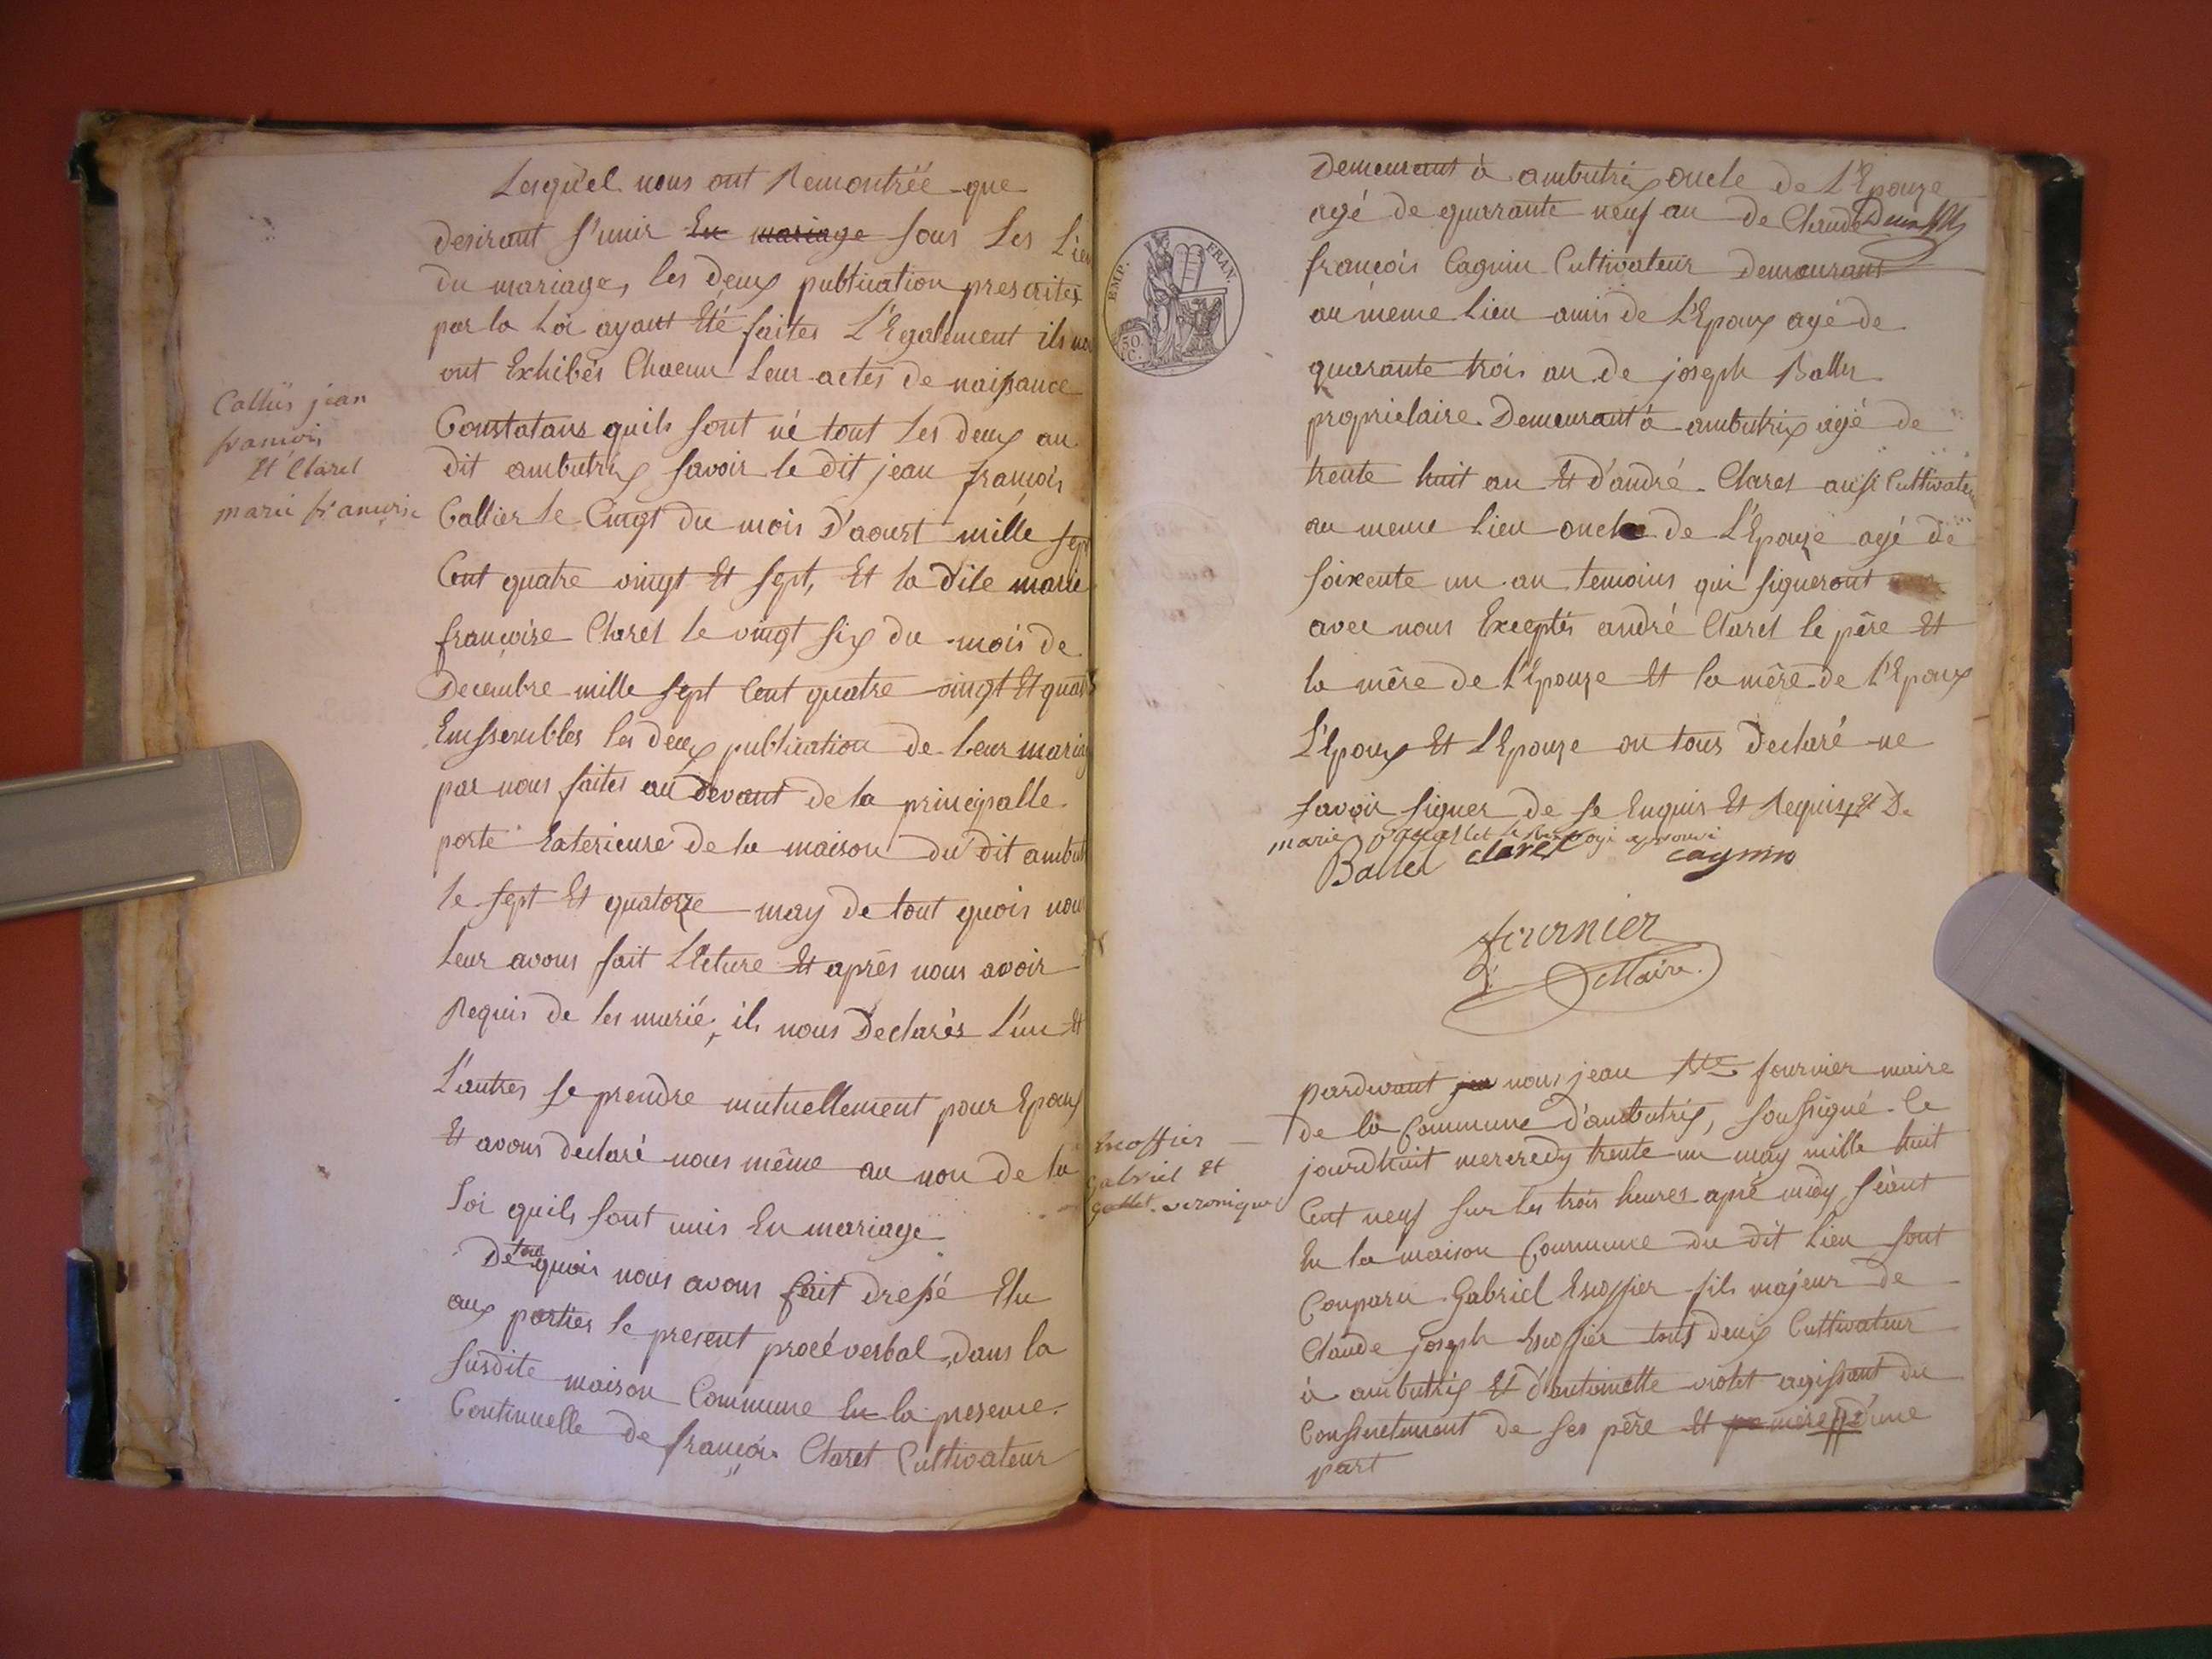 Lesqu'el nous ont Remontréé que
desirant s'unir En mariage sous Les Lien
du mariage, les deux publication prescrites
par la Loi ayant Eté faites L'Egalement ils
ont Exhibés Chacun Leur actes de naissance
Constatans quils sont né tout Les deux au
dit ambutrix savoir le dit jean françois
Callier le Cingt du mois D'aoust mille sept
Cent quatre vingt Et sept, Et la dite marie
françoise Claret le vingt six du mois de
Decembre mille sept Cent quatre vingt Et quat
Enssembles les deux publication de Leur mariag
par nous faites au devant de la principalle
porte Exterieure de la maison du dit ambut
le sept Et quatorze may de tout quois nous
Leur avons fait Lecture Et après nous avoir
Requis de les marié, ils nous Declarés L'un Et
L'autres se prendre mutuellement pour Epoux
Et avons declaré nous même au non de la
Loi quils sont unis En mariage
De tout quois nous avons fait dressé Elu
aux parties le present procé verbal, dans la
susdite maison Commune En la presence
Continuelle de françois Claret Cultivateur
jean
françois
Et Claret
marie françoise
EMP. FRAN.
50. C.
Demeurant à ambutrix oncle de L'Epouze
agé de quarante neuf an de Claude
françois Cagnin Cultivateur Demeurant
au même Lieu amis de L'Epoux agé de
quarante trois an de joseph Ballet
proprietaire Demeurant à ambutrix agé de
trente huit an Et d'andré Claret aussi Cultivateur
au meme Lieu oncle de L'Epouze agé de
soixente un an temoins qui signeront
avec nous Exceptés andré Claret le père Et
la mère de L'Epouze Et la mère de L'Epoux
L'Epoux Et L'Epouze on tous declaré ne
savoir signer de se Enquis Et Requis Et De
marie approuvé
Ballet claret cagnin
fournier
Maire
pardevant nous jean Bte fournier maire
de la Commune d'ambutrix, soussigné Ce
jourdhuit mercredy trente un may mille huit
Cent neuf sur les trois heures aprè midy séant
En la maison Commune du dit Lieu sont
Comparu Gabriel Escoffier fils majeur de
Claude joseph Escoffier tous deux Cultivateur
à ambutrix Et d'antoinette violet agissant du
Consentement de ses père Et mère d'une
part
Escoffier
Gabriel Et
Gallet veronique